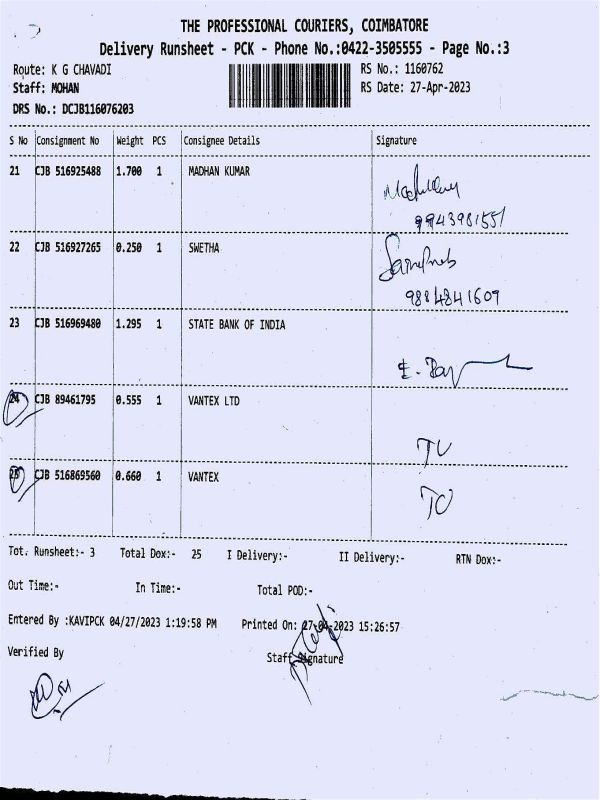 THE PROFESSIONAL COURIERS, COIMBATORE
Delivery Runsheet - PCK - Phone No.:0422-3505555 - Page No.:3
Route: K G CHAVADI RS No.: 1160762
Staff: MOHAN RS Date: 27-Apr-2023
DRS No.: DCJB116076203
S No Consignment No Weight PCS Consignee Details Signature
21 CJB 516925488 1.700 1 MADHAN KUMAR
9943981551
22 CJB 516927265 0.250 1 SWETHA
9884841609
23 CJB 516969480 1.295 1 STATE BANK OF INDIA
24 CJB 89461795 0.555 1 VANTEX LTD
25 CJB 516869560 0.660 1 VANTEX
Tot. Runsheet:- 3 Total Dox:- 25 I Delivery:- II Delivery:- RTN Dox:-
Out Time:- In Time:- Total POD:-
Entered By :KAVIPCK 04/27/2023 1:19:58 PM Printed On: 27-04-2023 15:26:57
Verified By Staff Signature